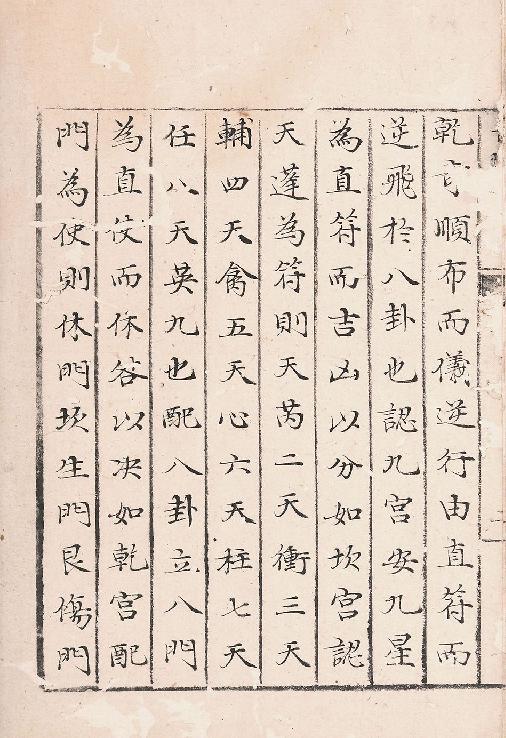 乾竒順布而儀逆行由直符而
逆飛於八卦也認九宮安九星
為直符而吉凶以分如坎宮認
天蓬為符則天芮二天衝三天
輔四天禽五天心六天柱七天
任八天英九也配八卦立八門
為直使而休咎以决如乾宮配
門為使則休門坎生門艮傷門